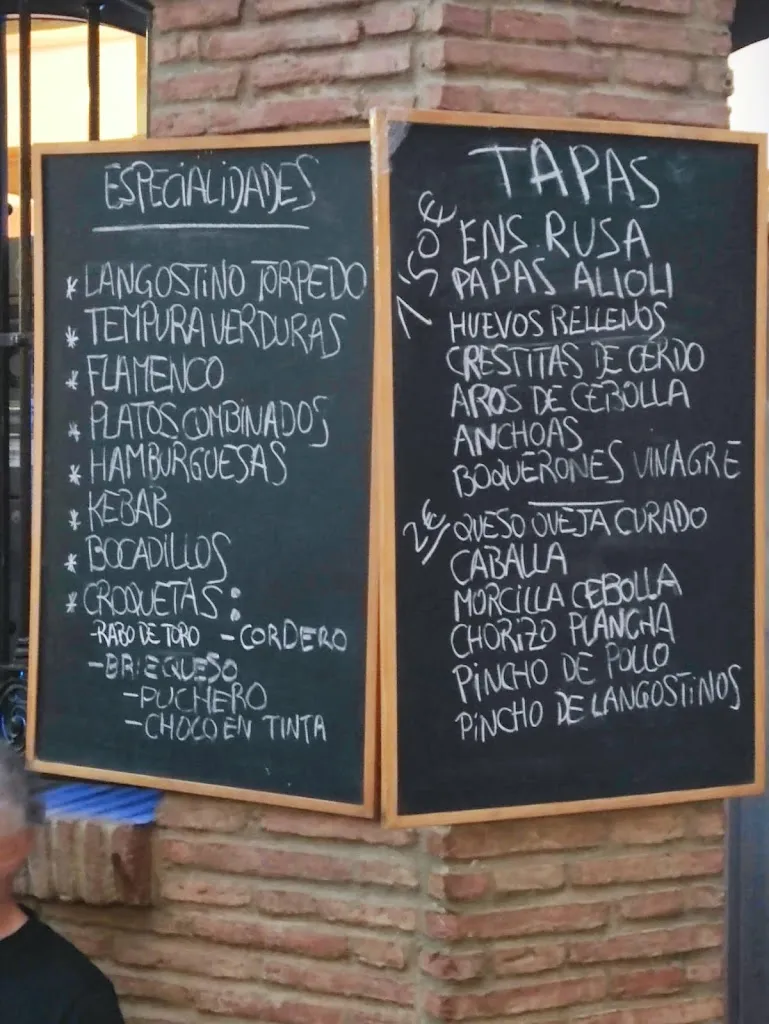 ESPECIALIDADES
* LANGOSTINO TORPEDO
* TEMPURA VERDURAS
* FLAMENCO
* PLATOS COMBINADOS
* HAMBURGUESAS
* KEBAB
* BOCADILLOS
* CROQUETAS:
-RABO DE TORO -CORDERO
-BRIE QUESO
-PUCHERO
-CHOCO EN TINTA
TAPAS
1'50€
ENS. RUSA
PAPAS ALIOLI
HUEVOS RELLENOS
CRESTITAS DE CERDO
AROS DE CEBOLLA
ANCHOAS
BOQUERONES VINAGRE
2€
QUESO OVEJA CURADO
CABALLA
MORCILLA CEBOLLA
CHORIZO PLANCHA
PINCHO DE POLLO
PINCHO DE LANGOSTINOS